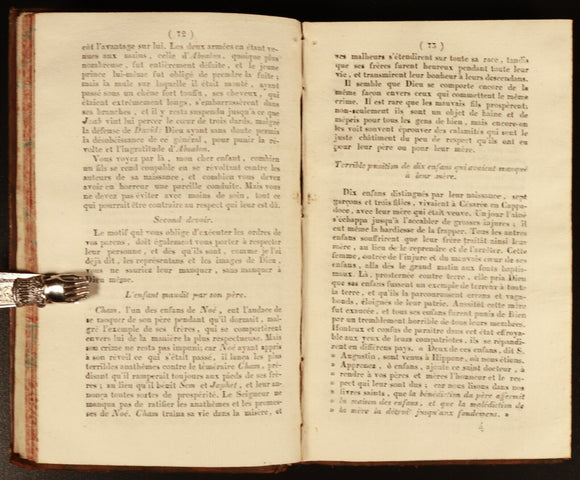 ( 72 )
eût l'avantage sur lui. Les deux armées en étant ve-
nues aux mains, celle d'Absalon, quoique plus
nombreuse, fut entièrement défaite, et le jeune
prince lui-même fut obligé de prendre la fuite;
mais la mule sur laquelle il était monté, ayant
passé sous un chêne fort touffu, ses cheveux, qui
étaient extrêmement longs, s'embarrassèrent dans
ses branches, et il y resta suspendu jusqu'à ce que
Joab vint lui percer le cœur de trois dards, malgré
la défense de David: Dieu ayant sans doute permis
la désobéissance de ce général, pour punir la ré-
volte et l'ingratitude d'Absalon.
Vous voyez par là, mon cher enfant, combien
un fils se rend coupable en se révoltant contre les
auteurs de sa naissance, et combien vous devez
avoir en horreur une pareille conduite. Mais vous
ne devez pas éviter avec moins de soin, tout ce
qui pourrait être contraire au respect qui leur est dû.
Second devoir.
Le motif qui vous oblige d'exécuter les ordres de
vos parens, doit également vous porter à respecter
leur personne, et dès qu'ils sont, comme je l'ai
déjà dit, les représentans et les images de Dieu,
vous ne sauriez leur manquer, sans manquer à
Dieu même.
L'enfant maudit par son père.
Cham, l'un des enfans de Noé, eut l'audace de
se moquer de son père pendant qu'il dormait, mal-
gré l'exemple de ses frères, qui se comportèrent
envers lui de la manière la plus respectueuse. Mais
son crime ne resta pas impuni; car Noé ayant appris
à son réveil ce qui s'était passé, il lança les plus
terribles anathêmes contre le téméraire Cham, pré-
disant qu'il ramperait toujours aux pieds de ses frè-
res; au lieu qu'il bénit Sem et Japhet, et leur an-
nonça toutes sortes de prospérité. Le Seigneur ne
manqua pas de ratifier les anathêmes et les promes-
ses de Noé. Cham traina sa vie dans la misère, et
( 73 )
ses malheurs s'étendirent sur toute sa race, tandis
que ses frères furent heureux pendant toute leur
vie, et transmirent leur bonheur à leurs descendans.
Il semble que Dieu se comporte encore de la
même façon envers ceux qui commettent le même
crime. Il est rare que les mauvais fils prospèrent;
non-seulement ils sont un objet de haine et de
mépris pour tous les gens de bien, mais encore on
les voit souvent éprouver des calamités qui sont le
juste châtiment du peu de respect qu'ils ont eu
pour leur père ou pour leur mère.
Terrible punition de dix enfans qui avaient manqué
à leur mère.
Dix enfans distingués par leur naissance, sept
garçons et trois filles, vivaient à Césarée en Cappa-
doce, avec leur mère qui était veuve. Un jour l'aîné
s'échappa jusqu'à l'accabler de grosses injures; il
eut même la hardiesse de la frapper. Tous les autres
enfans souffrirent que leur frère traitât ainsi leur
mère, au lieu de le reprendre et de l'arrêter. Cette
femme, outrée de l'injure et du mauvais cœur de ses
enfans, alla dès le grand matin aux fonts baptis-
maux. Là, prosternée contre terre, elle pria Dieu
que ses enfans fussent un exemple de terreur à toute
la terre, et qu'ils la parcourussent errans et vaga-
bonds, éloignés de leur patrie. Aussitôt cette mère
fut exaucée, et tous ses enfans furent punis de Dieu
par un tremblement horrible de tous leurs membres.
Honteux et confus de paraître dans cet état effroya-
ble aux yeux de leurs compatriotes, ils se répandi-
rent en différens pays. « Deux de ces enfans, dit S.
» Augustin, sont venus à Hippone, où nous étions.
» Apprenez, ô enfans, ajoute ce saint docteur, à
» rendre à vos pères et mères l'honneur et le res-
» pect qui leur sont dus; car nous lisons dans nos
» livres saints, que la bénédiction du père affermit
» la maison des enfans, et que la malédiction de
» la mère la détruit jusqu'aux fondemens. »
4